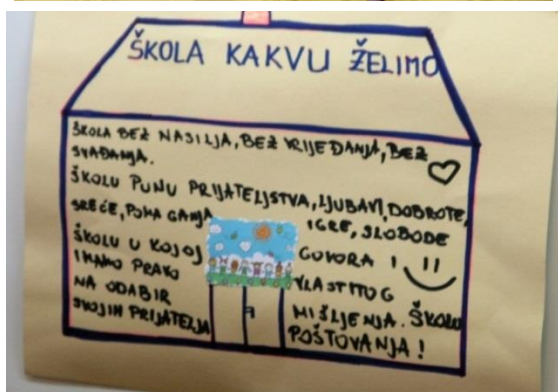 ŠKOLA KAKVU ŽELIMO
ŠKOLA BEZ NASILJA, BEZ VRIJEĐANJA, BEZ
SVAĐANJA.
ŠKOLU PUNU PRIJATELJSTVA, LJUBAVI, DOBROTE,
SREĆE, POMAGANJA, IGRE, SLOBODE
GOVORA I
VLASTITOG
MIŠLJENJA. ŠKOLU
POŠTOVANJA!
ŠKOLU U KOJOJ
IMAMO PRAVO
NA ODABIR
SVOJIH PRIJATELJA